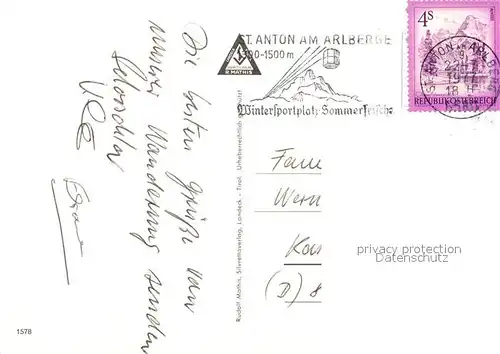 Die besten Grüße von
unserer Wanderung senden
ST. ANTON AM ARLBERG
1300-1500 m
R. MATHIS
Wintersportplatz, Sommerfrische
4S
REPUBLIK ÖSTERREICH
ST. ANTON AM ARLBERG
1977
18
Rudolf Mathis, Silvrettaverlag, Landeck - Tirol. Urheberrechtlich geschützt
Fam
Wern
(D) 8
privacy protection
Datenschutz
1578